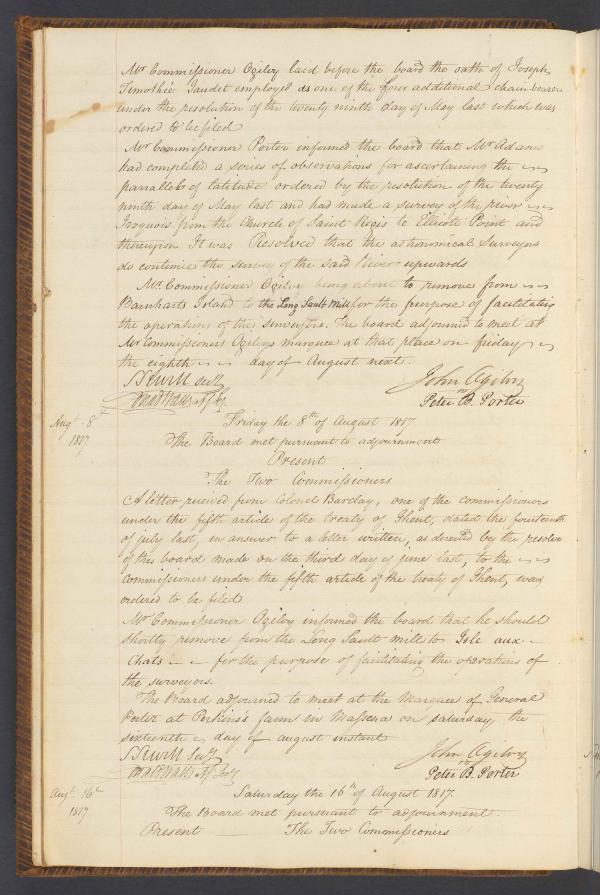 Mr Commissioner Ogilvy laid before the board the oath of Joseph
Timothée Gaudet employed as one of the four additional chain bearers
under the resolution of the twenty ninth day of May last which was
ordered to be filed
Mr Commissioner Porter informed the board that Mr Adams
had completed a series of observations for ascertaining the
parrallel of latitude ordered by the resolution of the twenty
ninth day of May last and had made a survey of the river
Iroquois from the Church of Saint Regis to Elliott Point and
thereupon It was Resolved that the astronomical surveyors
do continue the survey of the said river upwards
Mr Commissioner Ogilvy being about to remove from
Barnharts Island to the Long Sault Mill for the purpose of facilitating
the operations of the surveyors. The board adjourned to meet at
Mr Commissioners Ogilvys marquee at that place on friday
the eighth day of August next.
S Sewell Secy John Ogilvy
Peter B. Porter
Augt 8th
1817
Friday the 8th of August 1817
The Board met pursuant to adjournment
Present
The Two Commissioners
A letter recieved from Colonel Barclay, one of the commissioners
under the fifth article of the treaty of Ghent, dated the fourteenth
of july last, in answer to a letter written, as directed by the resolve
of this board made on the third day of june last, to the
commissioners under the fifth article of the treaty of Ghent, was
ordered to be filed
Mr Commissioner Ogilvy informed the board that he should
shortly remove from the Long Sault mill to Isle aux
Chats for the purpose of facilitating the operations of
the surveyors.
The Board adjourned to meet at the Marquee of General
Porter at Perkins's farm in Massena on saturday the
sixteenth day of august instant
S Sewell Secy John Ogilvy
Peter B. Porter
Augt 16th
1817
Saturday the 16th of August 1817.
The Board met pursuant to adjournment.
Present The Two Commissioners